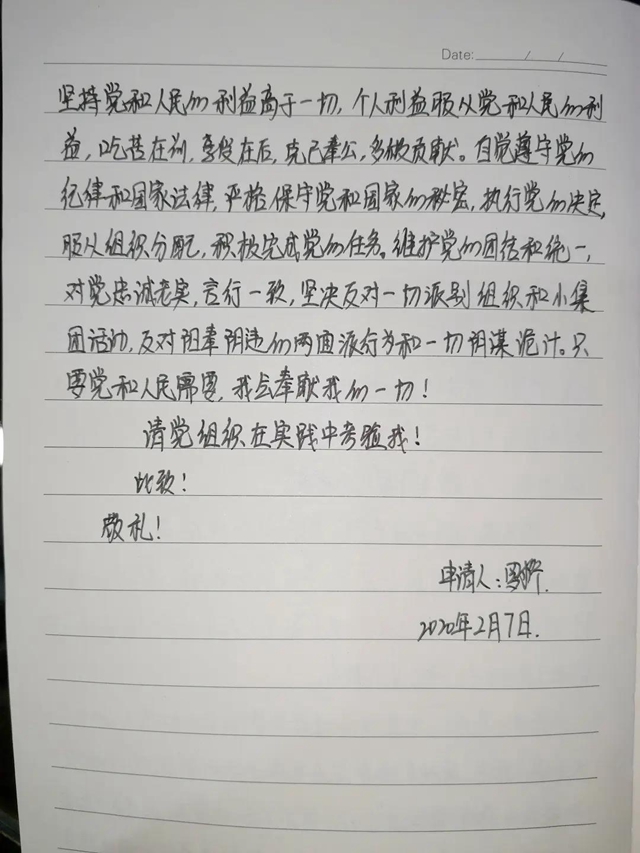 Date: / /
坚持党和人民的利益高于一切，个人利益服从党和人民的利
益，吃苦在前，享受在后，克己奉公，多做贡献。自觉遵守党的
纪律和国家法律，严格保守党和国家的秘密，执行党的决定，
服从组织分配，积极完成党的任务。维护党的团结和统一，
对党忠诚老实，言行一致，坚决反对一切派别组织和小集
团活动，反对阳奉阴违的两面派行为和一切阴谋诡计。只
要党和人民需要，我会奉献我的一切！
请党组织在实践中考验我！
此致！
敬礼！
申请人：
2020年2月7日.